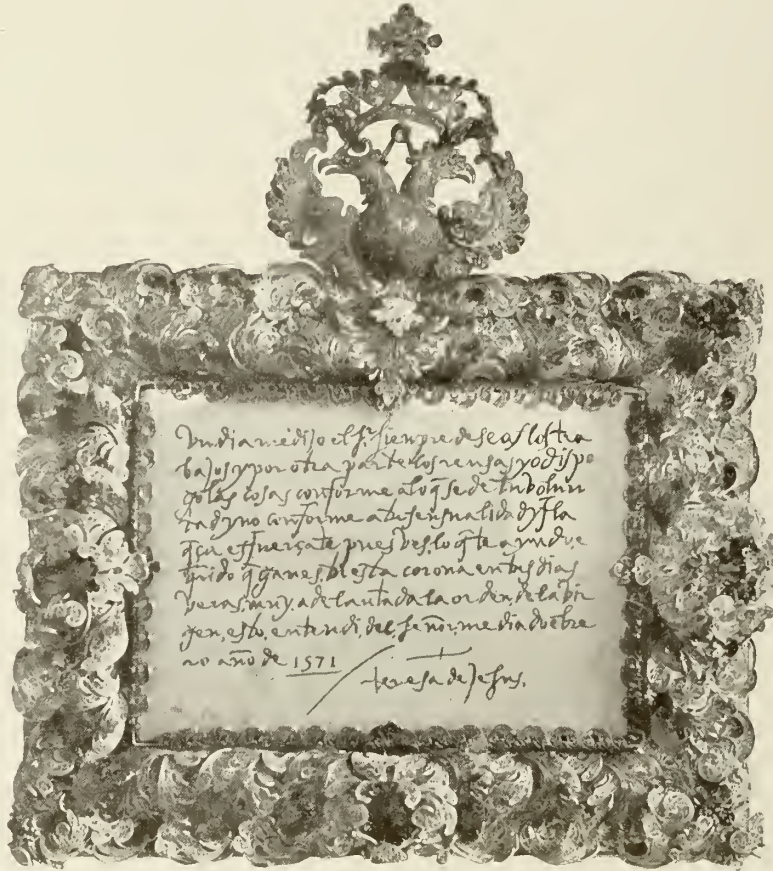 Vn dia me dijo el sr. siempre deseas los tra
bajos y por otra parte los rensas yo dispo
go las cosas conforme a lo q̃ se de tu volun
tad y no conforme a tu sensualidad y fla
q̃ça esfuerçate pues bes lo q̃ te ayudo, e
q̃rido q̃ ganes tu esta corona en tus dias
veras, muy, adelantada la orden de la vir
gen, esto, entendi, del señor, mediado ebre
ro año de 1571
teresa de Jesus.